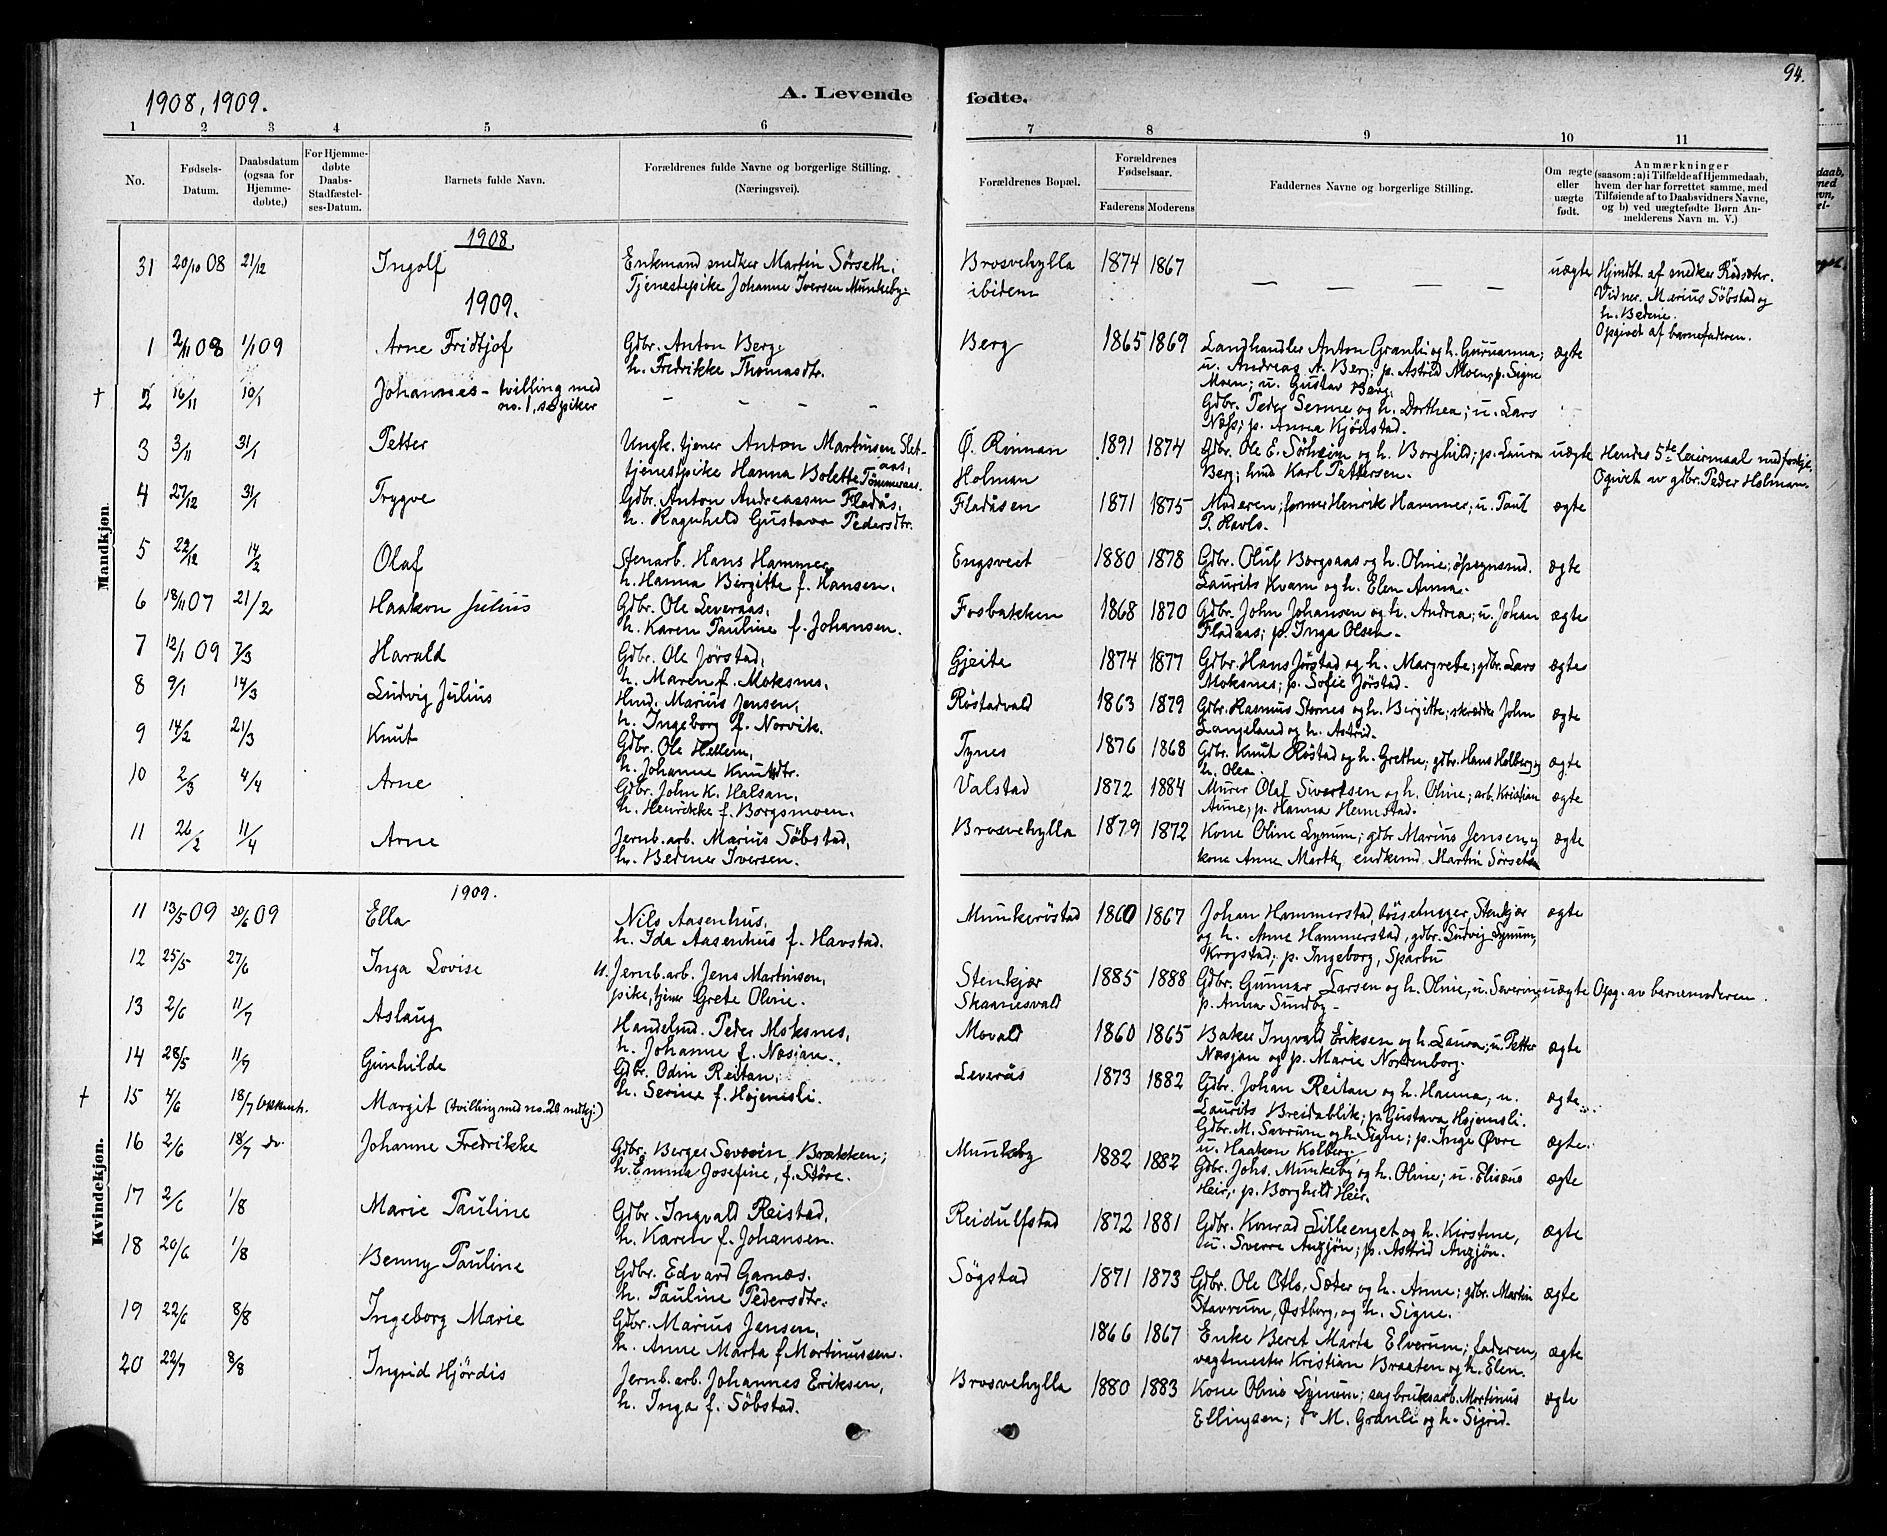 1908, 1909.
A. Levende fødte.
94.
1 2 3 4 5 6 7 8 9 10 11
No.
Fødsels-
Datum.
Daabsdatum
(ogsaa for
Hjemme-
døbte,)
For Hjemme-
døbte
Daabs-
Stadfæstel-
ses-Datum.
Barnets fulde Navn.
Forældrenes fulde Navne og borgerlige Stilling.
(Næringsvei).
Forældrenes Bopæl.
Forældrenes
Fødselsaar.
Faderens Moderens
Faddernes Navne og borgerlige Stilling.
Om ægte
eller
uægte
født.
Anmærkninger
(saasom: a) i Tilfælde af Hjemmedaab,
hvem der har forrettet samme, med
Tilføiende af to Daabsvidners Navne,
og b) ved uægtefødte Børn An-
melderens Navn m. V.)
Mandkjøn.
1908.
31 20/10 08 21/12 Ingolf Enkemand snedker Martin Sørseth, Brosvehylla 1874 1867 — — — — uægte Hjmdbt. af snedker Rødsæter.
Tjenestepike Johanne Iversen Munkeby. ibidem Vidner. Marius Søbstad og
1909. h. Bedine.
Opgivet af barnefaderen.
1 2/11 08 1/1 09 Arne Fridtjof Gdbr. Anton Berg, Berg 1865 1869 Landhandler Anton Granli og h. Guruanna; ægte
h. Fredrikke Thomasdtr. u. Andreas A. Berg; p. Astrid Moen, p. Signe
Moen; u. Gustav Berg.
† 2 16/11 10/1 Johannes - tvilling med — — — —
no. 1, se piker
Gdbr. Peder Semme og h. Dorthea; u. Lars
Næss; p. Anna Kjønstad.
3 3/11 31/1 Petter Ungk. tjener Anton Martinsen Slet- Ø. Rinnan 1891 1874 Gdbr. Ole E. Sørheim og h. Borghild; p. Laura uægte Hendes 5te leiermaal med forskj.
aas, tjenestpike Hanna Bolette Tømmeraas. Holman Berg; hmd Karl Pettersen. Ogivet av gdbr. Peder Holman
4 27/12 31/1 Trygve Gdbr. Anton Andreassen Fladås, Fladåsen 1871 1875 Moderen; former Henrik Hammer; u. Paul ægte
h. Ragnhild Gustava Pedersdtr. P. Havls.
5 22/12 14/2 Olaf Stenarb. Hans Hammer, Engsveet 1880 1878 Gdbr. Oluf Borgsaas og h. Oline; opsynsmd. ægte
h. Hanna Birgitte f. Hansen. Laurits Kvam og h. Elen Anna.
6 18/11 07 21/2 Haakon Julius Gdbr. Ole Leveraas, Fosbakken 1868 1870 Gdbr. John Johansen og h. Andrea; u. Johan ægte
h. Karen Pauline f. Johansen. Fladaas; p. Inga Olsen.
7 12/1 09 7/3 Harald Gdbr. Ole Jørstad, Gjeite 1874 1877 Gdbr. Hans Jørstad og h. Margrete; gdbr. Lars ægte
h. Maren f. Moksnes. Moksnes; p. Sofie Jørstad.
8 9/1 14/3 Ludvig Julius Hmd. Marius Jensen, Røstadvald 1863 1879 Gdbr. Rasmus Stornes og h. Birgitte; skrædder John ægte
h. Ingeborg f. Norvik. Langeland og h. Astrid.
9 14/2 21/3 Knut Gdbr. Ole Hellem, Tynes 1876 1868 Gdbr. Knut Røstad og h. Grethe; gdbr. Hans Holberg og ægte
h. Johanne Knutsdtr. h. Olea.
10 2/3 4/4 Arne Gdbr. John K. Halsan, Valstad 1872 1884 Murer Olaf Sivertsen og h. Oline; arb. Kristian ægte
h. Henrikke f. Borgsmoen. Aune; p. Hanna Hemstad.
11 26/2 11/4 Arne Jernb. arb. Marius Søbstad, Brosvehylla 1879 1872 Kone Oline Lynum; gdbr Marius Jensen og ægte
h. Bedine Iversen. kone Anne Marta, enkemd. Martin Sørseth
Kvindekjøn.
1909.
11 13/5 09 20/6 09 Ella Nils Aasenhus, Munkerøstad 1860 1867 Johan Hammerstad, Stenkjær ægte
h. Ida Aasenhus f. Havstad. og h. Anne Hammerstad, gdbr. Ludvig Lynum,
Krogstad; p. Ingeborg, Sparbu
12 25/5 27/6 Inga Lovise u. Jernb. arb. Jens Martinsen, Stenkjær 1885 1888 Gdbr. Gunnar Larsen og h. Oline, u. Severin uægte Opg. av barnemoderen.
pike, tjener Grete Oline. Skaanesvald p. Anna Sundby.
13 2/6 11/7 Aslaug Handelsmd. Peder Moksnes, Movald 1860 1865 Baker Ingvald Eriksen og h. Laura; u. Petter ægte
h. Johanne f. Næsjan. Næsjan og p. Marie Nordenborg.
14 28/5 11/7 Gunhilde Gdbr. Odin Reitan, Leverås 1873 1882 Gdbr. Johan Reitan og h. Hanna, u. ægte
h. Serine f. Hojemsli. Laurits Breidablik; p. Gustava Hojemsli.
† 15 4/6 18/7 Okkenh. Margit (tvilling med no. 20 mdkj.) Gdbr. M. Savrum og h. Signe; p. Inge Øvre ægte.
u. Haakon Kolberg.
16 2/6 18/7 do. Johanne Fredrikke Gdbr. Berger Severin Brækken; Munkeby 1882 1882 Gdbr. Johs. Munkeby og h. Oline; u. Elisæus ægte
h. Emma Josefine, f. Støre. Heir; p. Borghild Heir.
17 2/6 1/8 Marie Pauline Gdbr. Ingvald Reistad, Reidulfstad 1872 1881 Gdbr. Konrad Lilleenget og h. Kirstine, ægte
h. Karen f. Johansen. u. Sverre Auzjøn; p. Astrid Auzjøn.
18 20/6 1/8 Benny Pauline Gdbr. Edvard Garnæs. Søgstad 1871 1873 Gdbr. Ole Otls. Sæter og h. Anne; gdbr. Martin ægte
h. Pauline Pedersdtr. Stavrum, Østborg, og h. Signe.
19 22/6 8/8 Ingeborg Marie Gdbr. Marius Jensen, 1866 1867 Enke Beret Marta Elverum; faderen, ægte
h. Anne Marta f. Martinussen. vagtmester Kristian Braaten og h. Elen.
20 22/7 8/8 Ingrid Hjørdis Jernb. arb. Johannes Eriksen, Brosvehylla 1880 1883 Kone Oline Lynum; sagbruksarb. Martinus ægte
h. Inga f. Søbstad. Ellingsen; M. Granli og h. Sigrid.